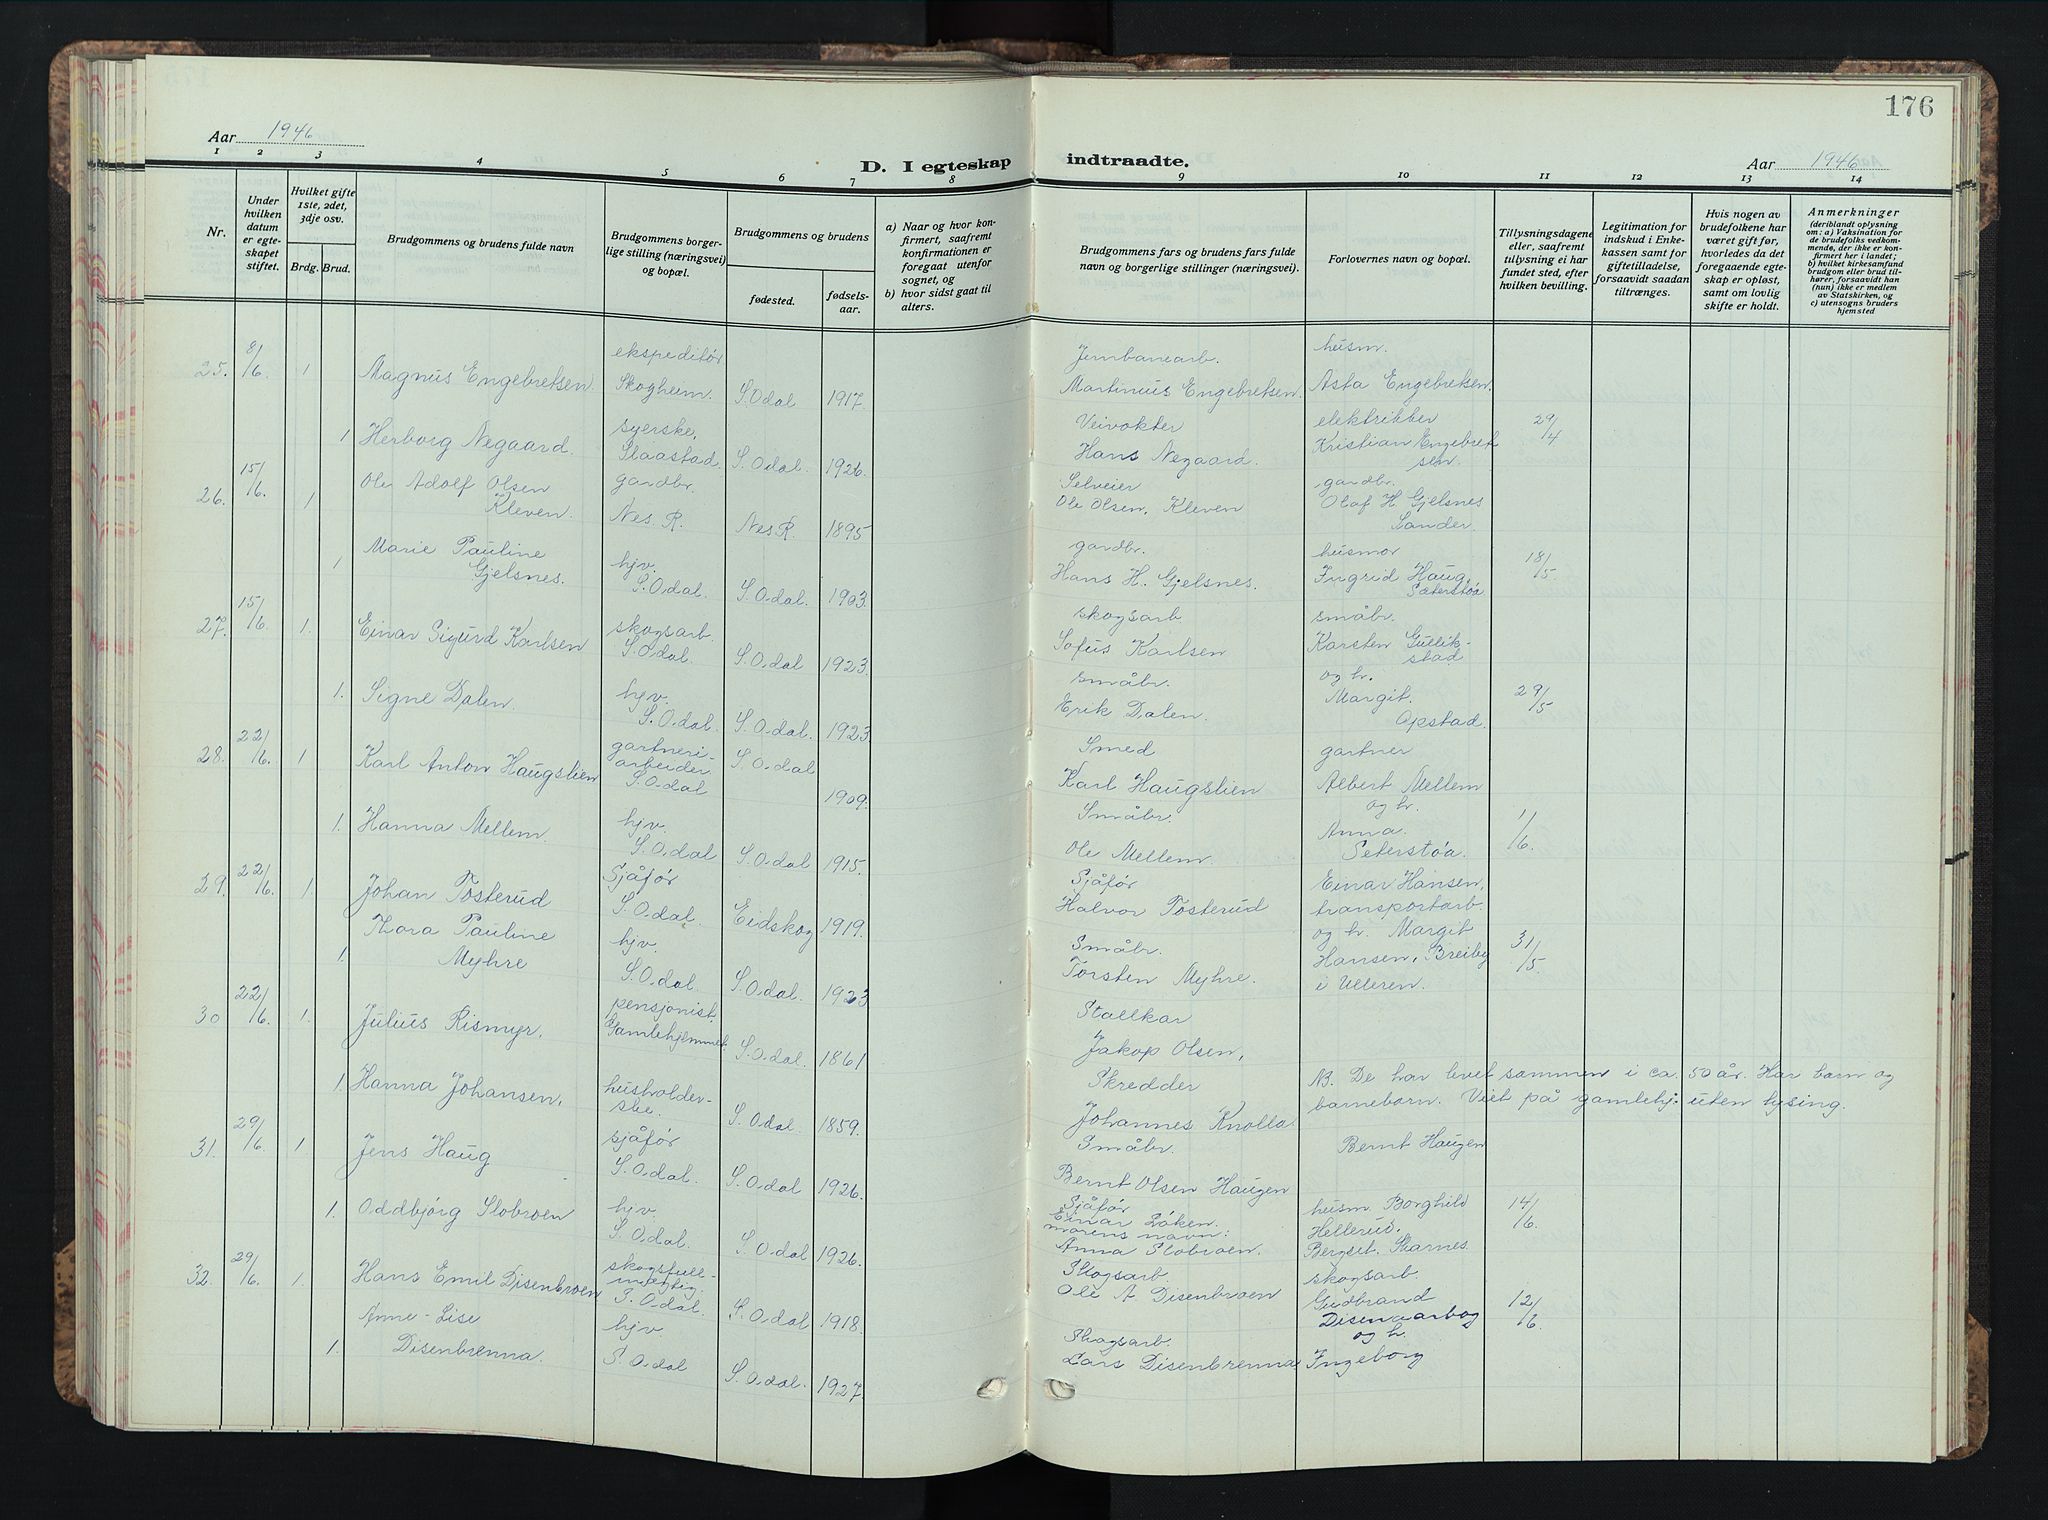 176
Aar 1946
D. I egteskap indtraadte.
Aar 1946
1 2 3 4 5 6 7 8 9 10 11 12 13 14
Nr.
Under hvilken datum er egteskapet stiftet.
Hvilket gifte 1ste, 2det, 3dje osv.
Brdg. Brud.
Brudgommens og brudens fulde navn
Brudgommens borgerlige stilling (næringsvei) og bopæl.
Brudgommens og brudens
fødested.
fødselsaar.
a) Naar og hvor konfirmert, saafremt konfirmationen er foregaat utenfor sognet, og
b) hvor sidst gaat til alters.
Brudgommens fars og brudens fars fulde navn og borgerlige stillinger (næringsvei).
Forlovernes navn og bopæl.
Tillysningsdagene eller, saafremt tillysning ei har fundet sted, efter hvilken bevilling.
Legitimation for indskud i Enkekassen samt for giftetilladelse, forsaavidt saadan tiltrænges.
Hvis nogen av brudefolkene har været gift før, hvorledes da det foregaaende egteskap er opløst, samt om lovlig skifte er holdt.
Anmerkninger
(deriblandt oplysning om: a) Vaksination for de brudefolks vedkommende, der ikke er konfirmert her i landet; b) hvilket kirkesamfund brudgom eller brud tilhører, forsaavidt han (hun) ikke er medlem av Statskirken, og c) utensogns bruders hjemsted
25. 8/6 1 Magnus Engebretsen. ekspeditør Skogheim. S.Odal 1917. Jernbanearb. Martinius Engebretsen. husm. Asta Engebretsen.
1 Herborg Negaard. syerske, Slaastad. S.Odal. 1926. Veivokter Hans Negaard. elektrikker Kristian Engebretsen. 29/4
26. 15/6. 1 Ole Adolf Olsen Kleven. gardbr. Nes. R. Nes R. 1895 Selveier Ole Olsen, Kleven gardbr. Olaf H. Gjelsnes Sander.
1 Marie Pauline Gjelsnes. hjv. S.Odal. S.Odal. 1903. gardbr. Hans H. Gjelsnes. husmor Ingrid Haug, Sæterstøa 18/5.
27. 15/6 1. Einar Sigurd Karlsen skogsarb. S.Odal. S.Odal 1923. skogsarb Sofus Karlsen småbr. Karsten Gullikstad
1. Signe Dalen. hjv. S.Odal. S.Odal. 1923 småbr. Erik Dalen. og hr. Margit. Opstad. 29/5
28. 22/6. 1 Karl Anton Haugslien gartneriarbeider S.Odal S.Odal 1909. Smed Karl Haugslien gartner Albert Mellem
1. Hanna Mellem. hjv. S.Odal S.Odal 1915. Småbr. Ole Mellem og hr. Anna. Seterstøa. 1/6.
29. 22/6. 1. Johan Tosterud Sjåfør S.Odal. Eidskog 1919. Sjåfør Halvor Tosterud Einar Hansen, transportarb.
1. Thora Pauline Myhre hjv. S.Odal. S.Odal. 1923 Småbr. Torsten Myhre. og hr. Margit Hansen, Breiby i Ulleren. 31/5
30 22/6. 1. Julius Rismyr. pensjonist. Gamlehjemmet. S.Odal. 1861 Stallkar Jakop Olsen,
1 Hanna Johansen. husholderske. S.Odal. 1859. Skredder Johannes Knolla. NB. De har levet sammen i ca. 50 år. Har barn og barnebarn. Viet på gamlehj. uten lysing.
31. 29/6 1 Jens Haug sjåfør S.Odal. S.Odal 1926. Småbr. Bernt Olsen Haugen Bernt Haugen
1. Oddbjørg Slobroen hjv. S.Odal. S.Odal 1926. Sjåfør Einar Løken. morens navn: Anna Slobroen. husm Borghild Hellerud. Bergset. Skarnes. 14/6.
32. 29/6. 1. Hans Emil Disenbroen skogsfullmægtig. S.Odal. S.Odal 1918. Skogsarb. Ole A Disenbroen skogsarb. Gudbrand Disenaarbog
1. Anne-Lise Disenbrenna. hjv. S.Odal S.Odal. 1927. Skogsarb. Lars Disenbrenna og hr. Ingeborg 12/6